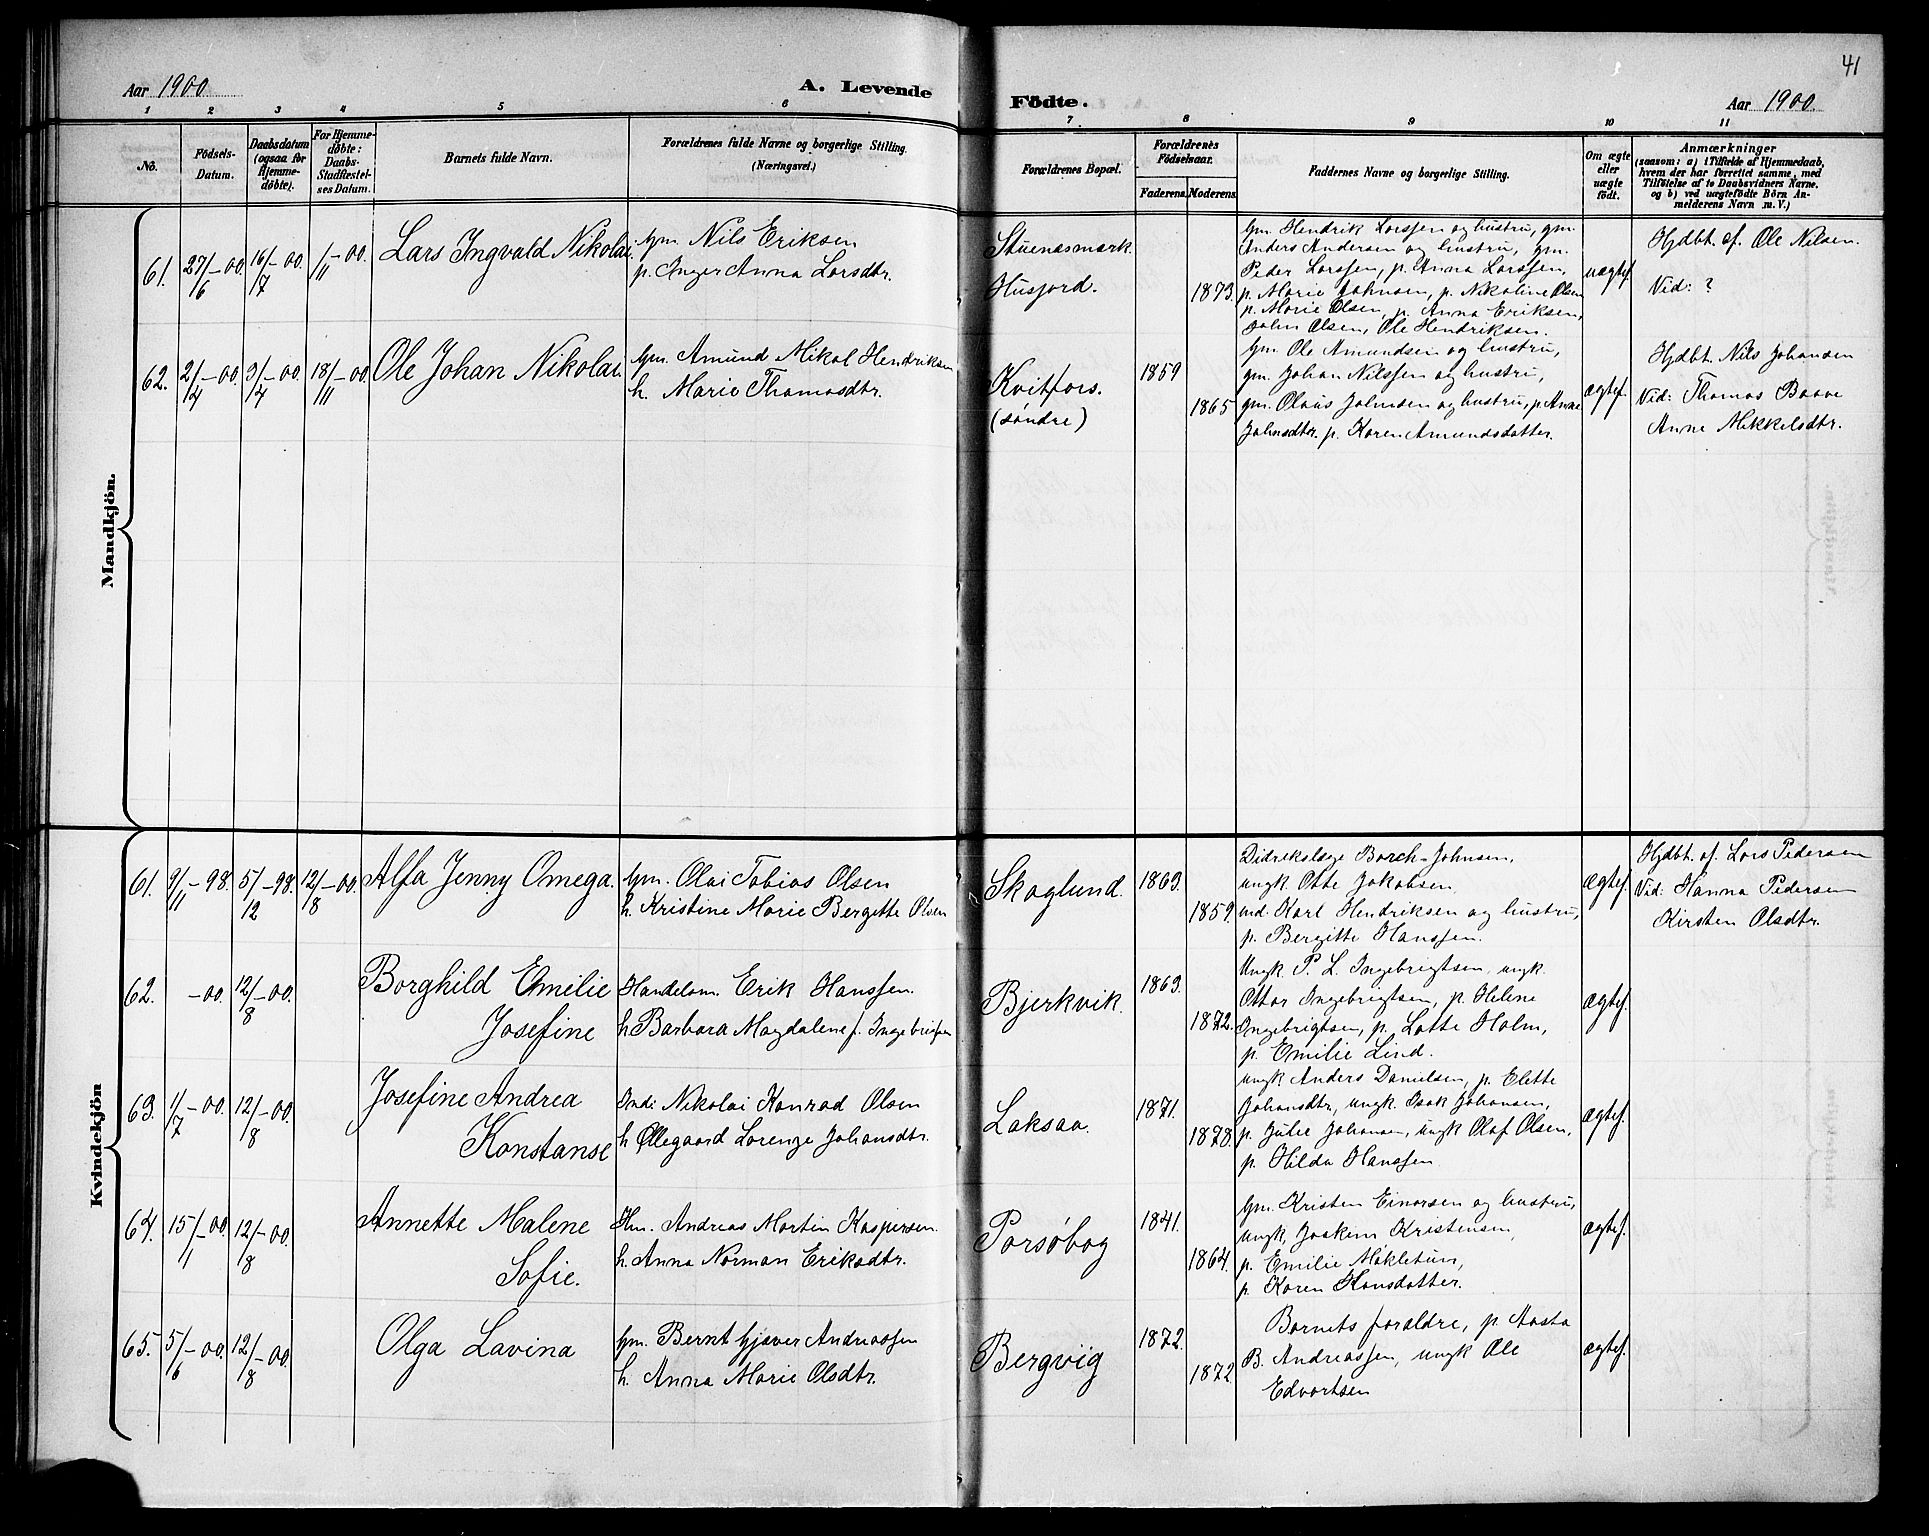 41
Aar 1900
A. Levende
Födte.
Aar 1900.
1 2 3 4 5 6 7 8 9 10 11
No.
Födsels-
Datum.
Daabsdatum
(ogsaa for
Hjemme-
döbte).
For Hjemme-
döbte:
Daabs-
Stadfæstel-
ses Datum.
Barnets fulde Navn.
Forældrenes fulde Navne og borgerlige Stilling.
(Næringsvei.)
Forældrenes Bopæl.
Forældrenes
Födselsaar.
Faderens.
Moderens.
Faddernes Navne og borgerlige Stilling.
Om ægte
eller
uægte
födt.
Anmærkninger
(saasom: a) i Tilfælde af Hjemmedaab,
hvem der har forrettet samme, med
Tilföielse af to Daabsvidners Navne.
og b) ved uægtefödte Börn An-
melderens Navn m. V.)
Mandkjön.
61. 27/6-00. 16/7-00. 1/11-00. Lars Ingvald Nikolai.
gm Nils Eriksen
p. Inger Anna Larsdtr.
Stuenæsmark
Husjord.
1873.
gm. Hendrik Larssen og hustru, gm.
Anders Andersen og hustru, gm.
Peder Larssen, p. Anna Larssen,
p. Marie Johnsen, p. Nikoline Olsen
p. Marie Olsen, p. Anna Eriksen,
John Olsen, Ole Hendriksen.
uægtef.
Hjdbt. af. Ole Nilsen.
Vid: ?
62. 2/4-00. 3/4-00. 18/11-00. Ole Johan Nikolai
gm. Amund Mikal Hendriksen
h. Marie Thomasdtr.
Kvitfors.
(søndre)
1859
1865
gm Ole Amundsen og hustru,
gm. Johan Nilssen og hustru,
gm. Olaus Johnsen og hustru, p. Anne
Johnsdtr. p. Karen Amundsdatter.
ægtef.
Hjdbt. Nils Johansen
Vid: Thomas Baave
Anne Mikkelsdtr.
Kvindekjön
61. 9/11-98. 5/12-98. 12/8-00. Alfa Jenny Omega.
gm. Olai Tobias Olsen
h. Kristine Marie Bergette Olsen
Skoglund.
1863.
1859.
Didrekslæge Borch-Johnsen,
ungk Otte Jakobsen
ind. Karl Hendriksen og hustru,
p. Bergitte Hanssen.
ægtef.
Hjdbt. af. Lars Pedersen
Vid: Hanna Pedersen
Kirsten Olsdtr.
62. -00. 12/8-00. Borghild Emilie
Josefine
Handelsm. Erik Hanssen.
h Barbara Magdalene f. Ingebrigtsen
Bjerkvik.
1863.
1872.
Ungk. P. L. Ingebrigtsen, ungk.
Ottar Ingebrigtsen, p. Helene
Ingebrigtsen, p. Lotte Holm,
p. Emilie Lind.
ægtef.
63. 1/7-00. 12/8-00. Josefine Andrea
Konstanse
Ind: Nikolai Konrad Olsen
h Ollegaard Lorenze Johansdtr.
Laksaa.
1871.
1878.
ungk Anders Danielsen, p. Elette
Johansdtr, ungk. Isak Johansen,
p. Julie Johansen, ungk Olaf Olsen,
p. Hilda Hanssen.
ægtef.
64. 15/1-00. 12/8-00. Annette Malene
Sofie.
Hm. Andreas Martin Kaspersen.
h. Anna Norman Eriksdtr.
Porsøbog
1841.
1864.
gm. Kristen Einarsen og hustru,
ungk, Joakem Kristensen,
p. Emilie Mökletun,
p. Karen Hansdatter.
ægtef.
65. 5/6-00. 12/8-00. Olga Lavina
gm. Bernt Gjæver Andreassen
h. Anna Marie Olsdtr.
Bergvig
1872.
1872
Barnets forældre, p Aasta
B. Andreassen, ungk Ole
Edvartsen
ægtef.